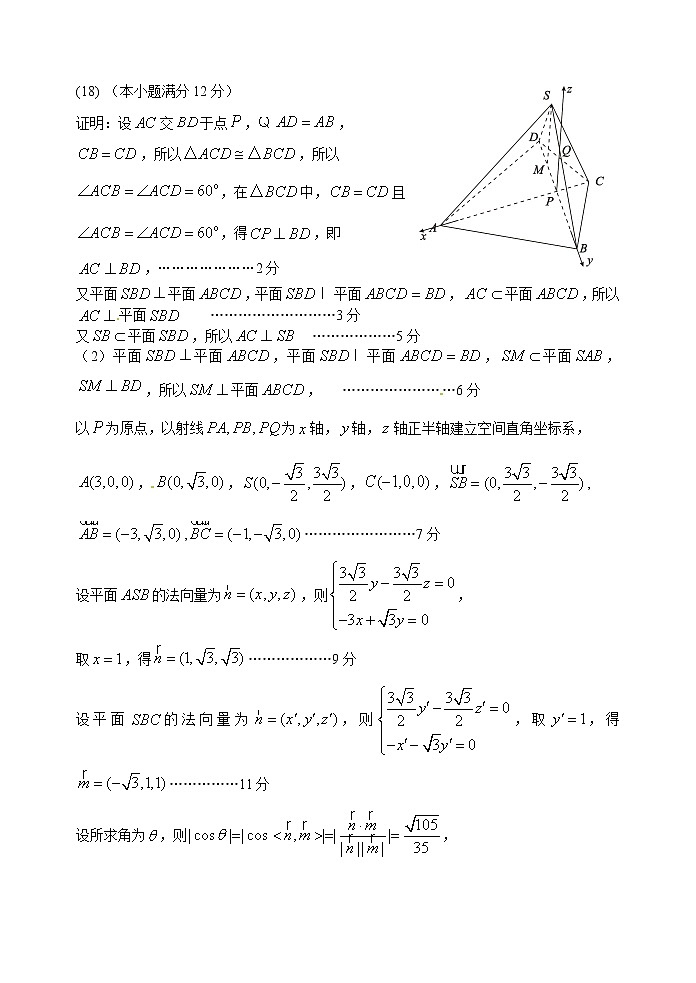 (18) （本小题满分12分）
证明：设 AC 交 BD于点 P，Q AD = AB，
CB = CD，所以△ACD ≅ △BCD，所以
∠ACB = ∠ACD = 60°，在△BCD中，CB = CD且
∠ACB = ∠ACD = 60°，得CP ⊥ BD，即
AC ⊥ BD，…………………2分
又平面SBD⊥平面ABCD，平面SBD I 平面ABCD = BD，AC ⊂平面ABCD，所以
AC ⊥平面SBD ………………………3分
又SB ⊂平面SBD，所以AC ⊥ SB ………………5分
（2）平面SBD⊥平面ABCD，平面SBD I 平面ABCD = BD，SM ⊂平面SAB，
SM ⊥ BD，所以SM ⊥平面ABCD， ……………………6分
以P为原点，以射线PA, PB, PQ为x轴，y轴，z轴正半轴建立空间直角坐标系，
A(3,0,0)，B(0, √3,0)，S(0,-√3/2, 3√3/2)，C(-1,0,0)，SB = (0, 3√3/2, -3√3/2)，
AB = (-3, √3,0)，BC = (-1,-√3,0)……………………7分
设平面ASB的法向量为n = (x, y, z)，则{3√3/2 y - 3√3/2 z = 0
-3x + √3y = 0，
取x = 1，得n = (1, √3, √3)………………9分
设平面SBC的法向量为n = (x′, y′, z′)，则{3√3/2 y′ - 3√3/2 z′ = 0
-x′ - √3y′ = 0，取y′ = 1，得
m = (-√3,1,1)……………11分
设所求角为θ，则|cosθ|=|cos<n,m>|=|n·m/|n||m||= √105/35，
S
z
D
Q
M
C
P
A
x
B
y